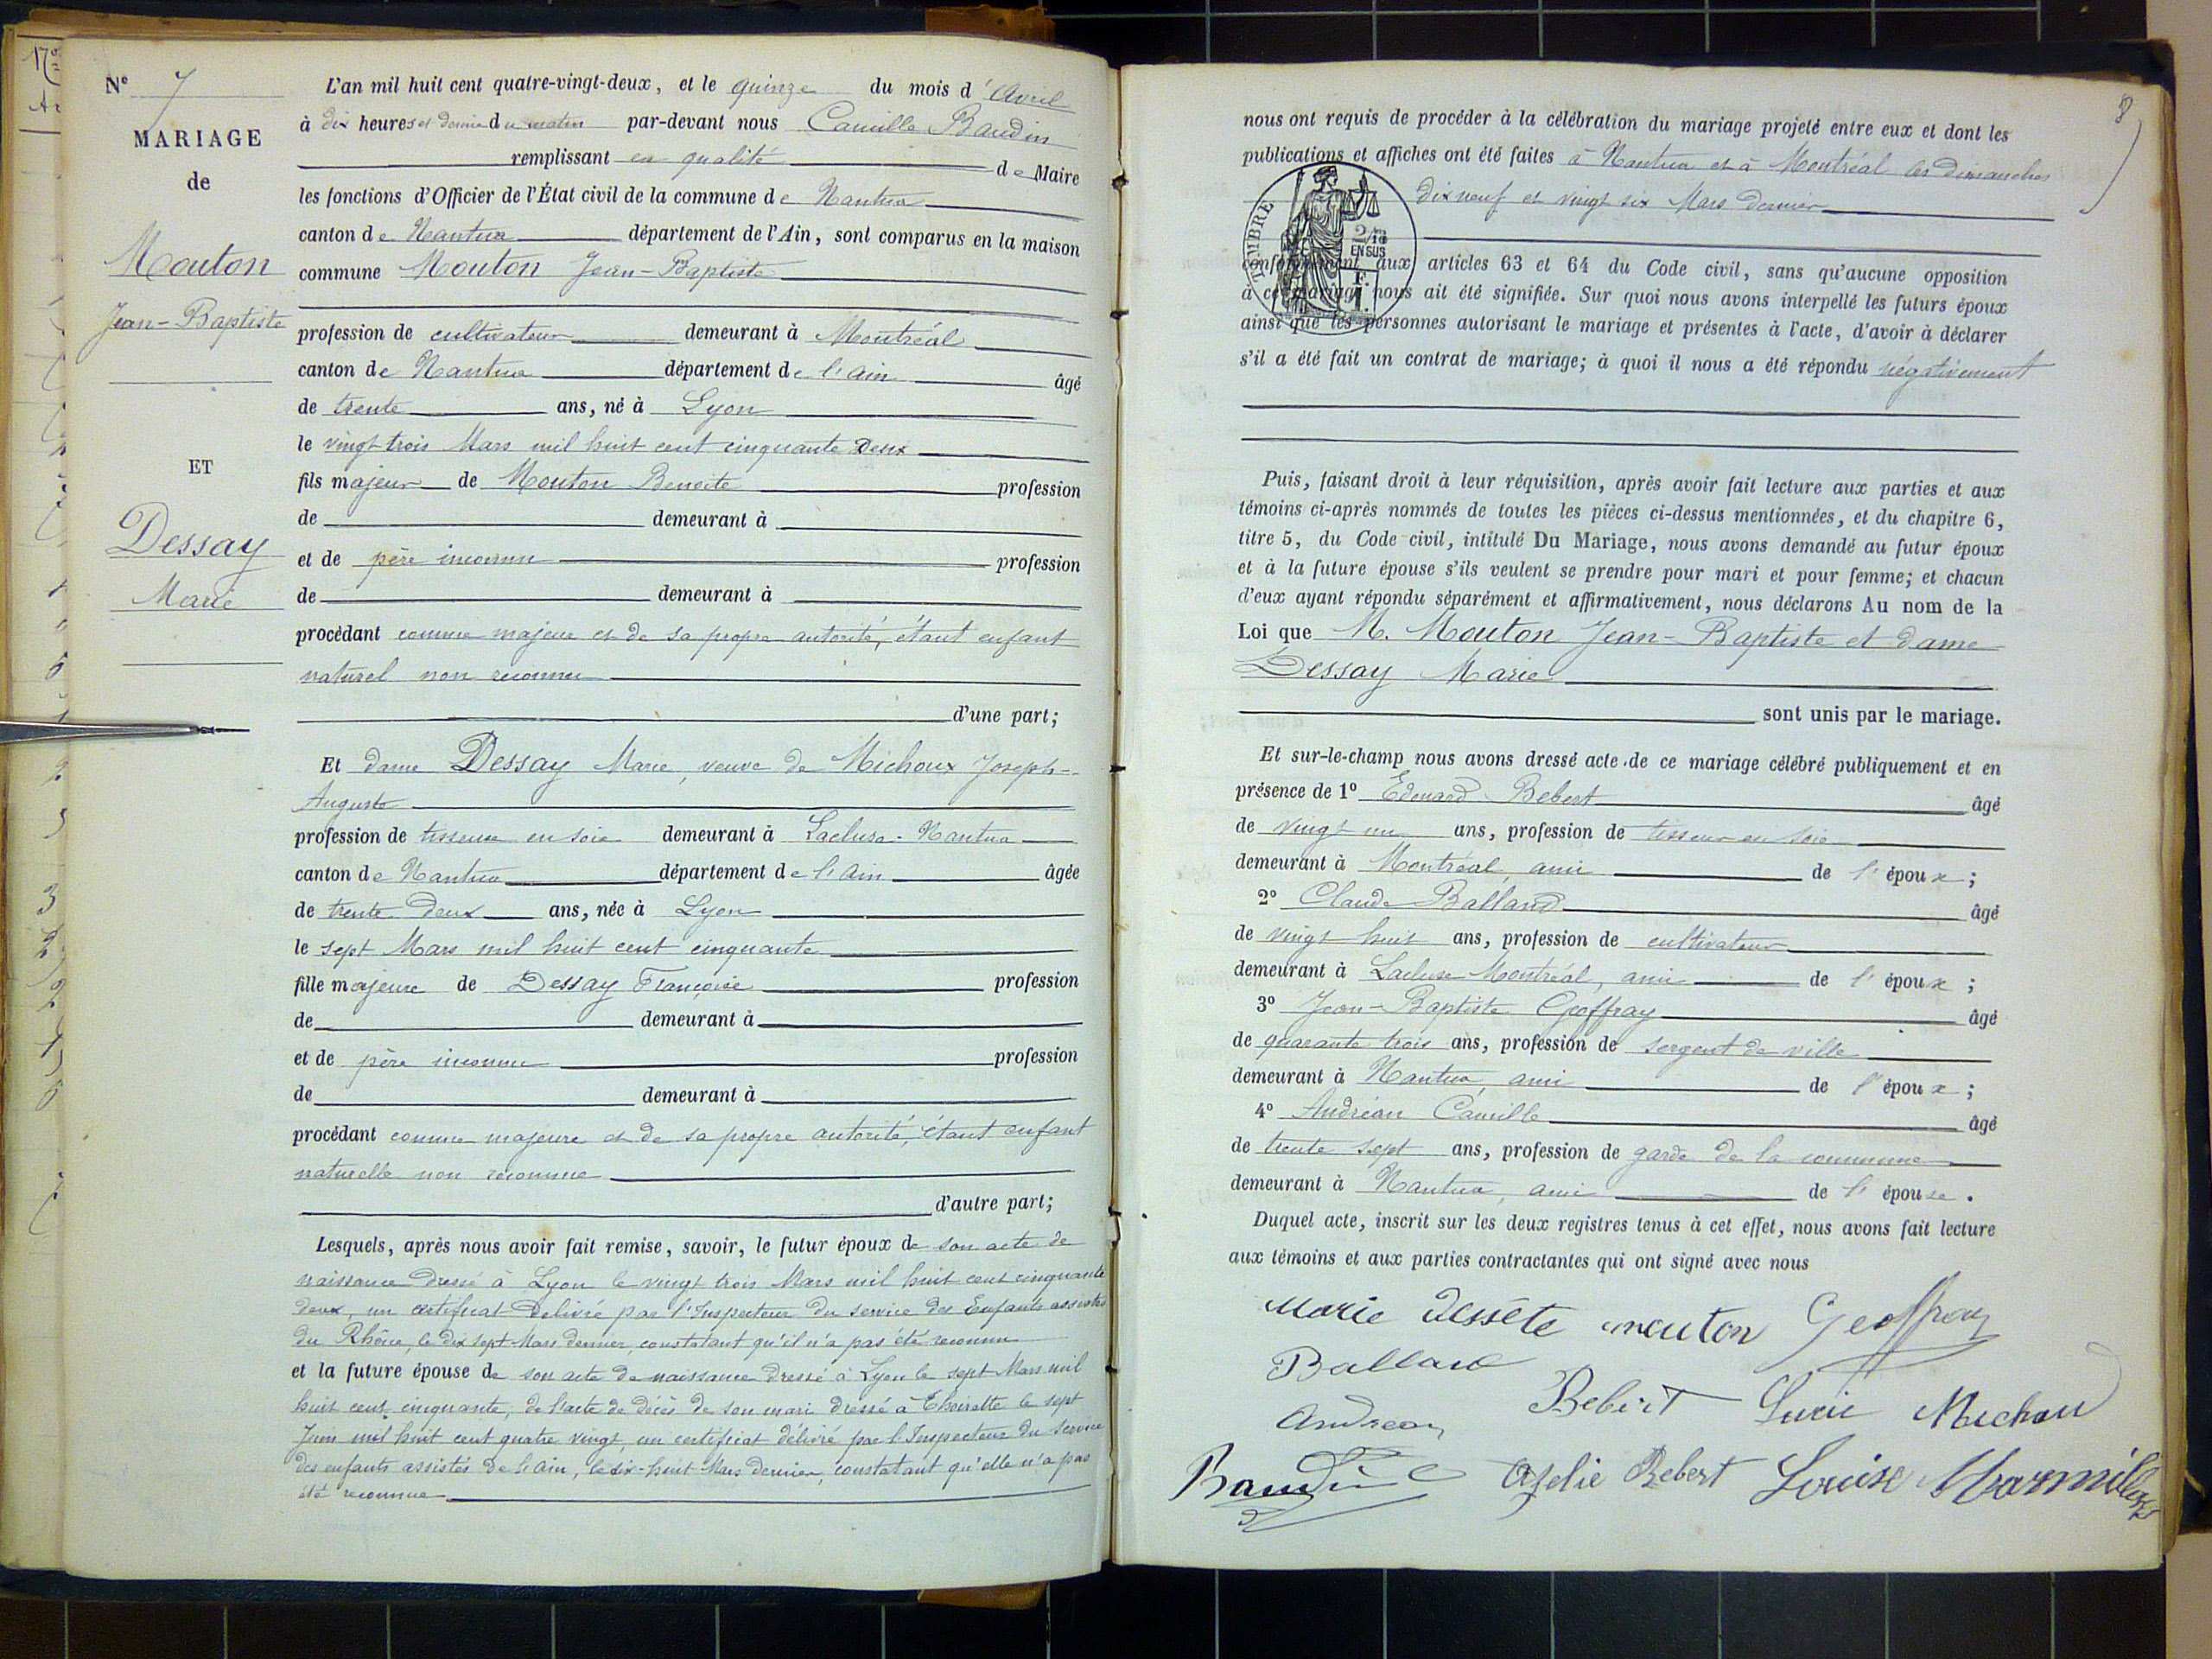 N° 7
MARIAGE
de
Mouton
Jean-Baptiste
ET
Dessay
Marie
L'an mil huit cent quatre-vingt-deux, et le quinze du mois d'Avril
à dix heures et demie du matin par-devant nous Camille Baudin
remplissant en qualité de Maire
les fonctions d'Officier de l'État civil de la commune de Nantua
canton de Nantua département de l'Ain, sont comparus en la maison
commune Mouton Jean-Baptiste
profession de cultivateur demeurant à Montréal
canton de Nantua département de l'Ain âgé
de trente ans, né à Lyon
le vingt trois Mars mil huit cent cinquante Deux
fils majeur de Mouton Benoite profession
de demeurant à
et de père inconnu profession
de demeurant à
procédant comme majeur et de sa propre autorité, étant enfant
naturel non reconnu
d'une part;
Et dame Dessay Marie, veuve de Michoux Joseph-
Auguste
profession de tisseuse en soie demeurant à Lacluse-Nantua
canton de Nantua département de l'Ain âgée
de trente deux ans, née à Lyon
le sept Mars mil huit cent cinquante
fille majeure de Dessay Françoise profession
de demeurant à
et de père inconnu profession
de demeurant à
procédant comme majeure et de sa propre autorité, étant enfant
naturelle non reconnue
d'autre part;
Lesquels, après nous avoir fait remise, savoir, le futur époux de son acte de
naissance dressé à Lyon le vingt trois Mars mil huit cent cinquante
deux, un certificat délivré par l'Inspecteur du service des Enfants assistés
du Rhône, le dix sept Mars dernier, constatant qu'il n'a pas été reconnu
et la future épouse de son acte de naissance dressé à Lyon le sept Mars mil
huit cent cinquante, de l'acte de décès de son mari dressé à Thoirette le sept
Juin mil huit cent quatre vingt, un certificat délivré par l'Inspecteur du service
des enfants assistés de l'Ain, le dix-huit Mars dernier, constatant qu'elle n'a pas
été reconnue
8
nous ont requis de procéder à la célébration du mariage projeté entre eux et dont les
publications et affiches ont été faites à Nantua et à Montréal les dimanches
dix neuf et vingt six Mars dernier
TIMBRE
2/10
EN SUS
F.
conformément aux articles 63 et 64 du Code civil, sans qu'aucune opposition
à ce mariage nous ait été signifiée. Sur quoi nous avons interpellé les futurs époux
ainsi que les personnes autorisant le mariage et présentes à l'acte, d'avoir à déclarer
s'il a été fait un contrat de mariage; à quoi il nous a été répondu négativement
Puis, faisant droit à leur réquisition, après avoir fait lecture aux parties et aux
témoins ci-après nommés de toutes les pièces ci-dessus mentionnées, et du chapitre 6,
titre 5, du Code civil, intitulé Du Mariage, nous avons demandé au futur époux
et à la future épouse s'ils veulent se prendre pour mari et pour femme; et chacun
d'eux ayant répondu séparément et affirmativement, nous déclarons Au nom de la
Loi que M. Mouton Jean-Baptiste et dame
Dessay Marie
sont unis par le mariage.
Et sur-le-champ nous avons dressé acte de ce mariage célébré publiquement et en
présence de 1° Edouard Bebert âgé
de vingt un ans, profession de tisseur en soie
demeurant à Montréal, ami de l'époux;
2° Claude Balland âgé
de vingt huit ans, profession de cultivateur
demeurant à Lacluse Montréal, ami de l'époux;
3° Jean-Baptiste Geoffray âgé
de quarante trois ans, profession de sergent de ville
demeurant à Nantua, ami de l'époux;
4° Andréan Camille âgé
de trente sept ans, profession de garde de la commune
demeurant à Nantua, ami de l'épouse.
Duquel acte, inscrit sur les deux registres tenus à cet effet, nous avons fait lecture
aux témoins et aux parties contractantes qui ont signé avec nous
Marie Dessete mouton Geoffray
Balland
Bebert Lucie Michou
Andrean
Baudin Azelie Bebert Louise Marmillon